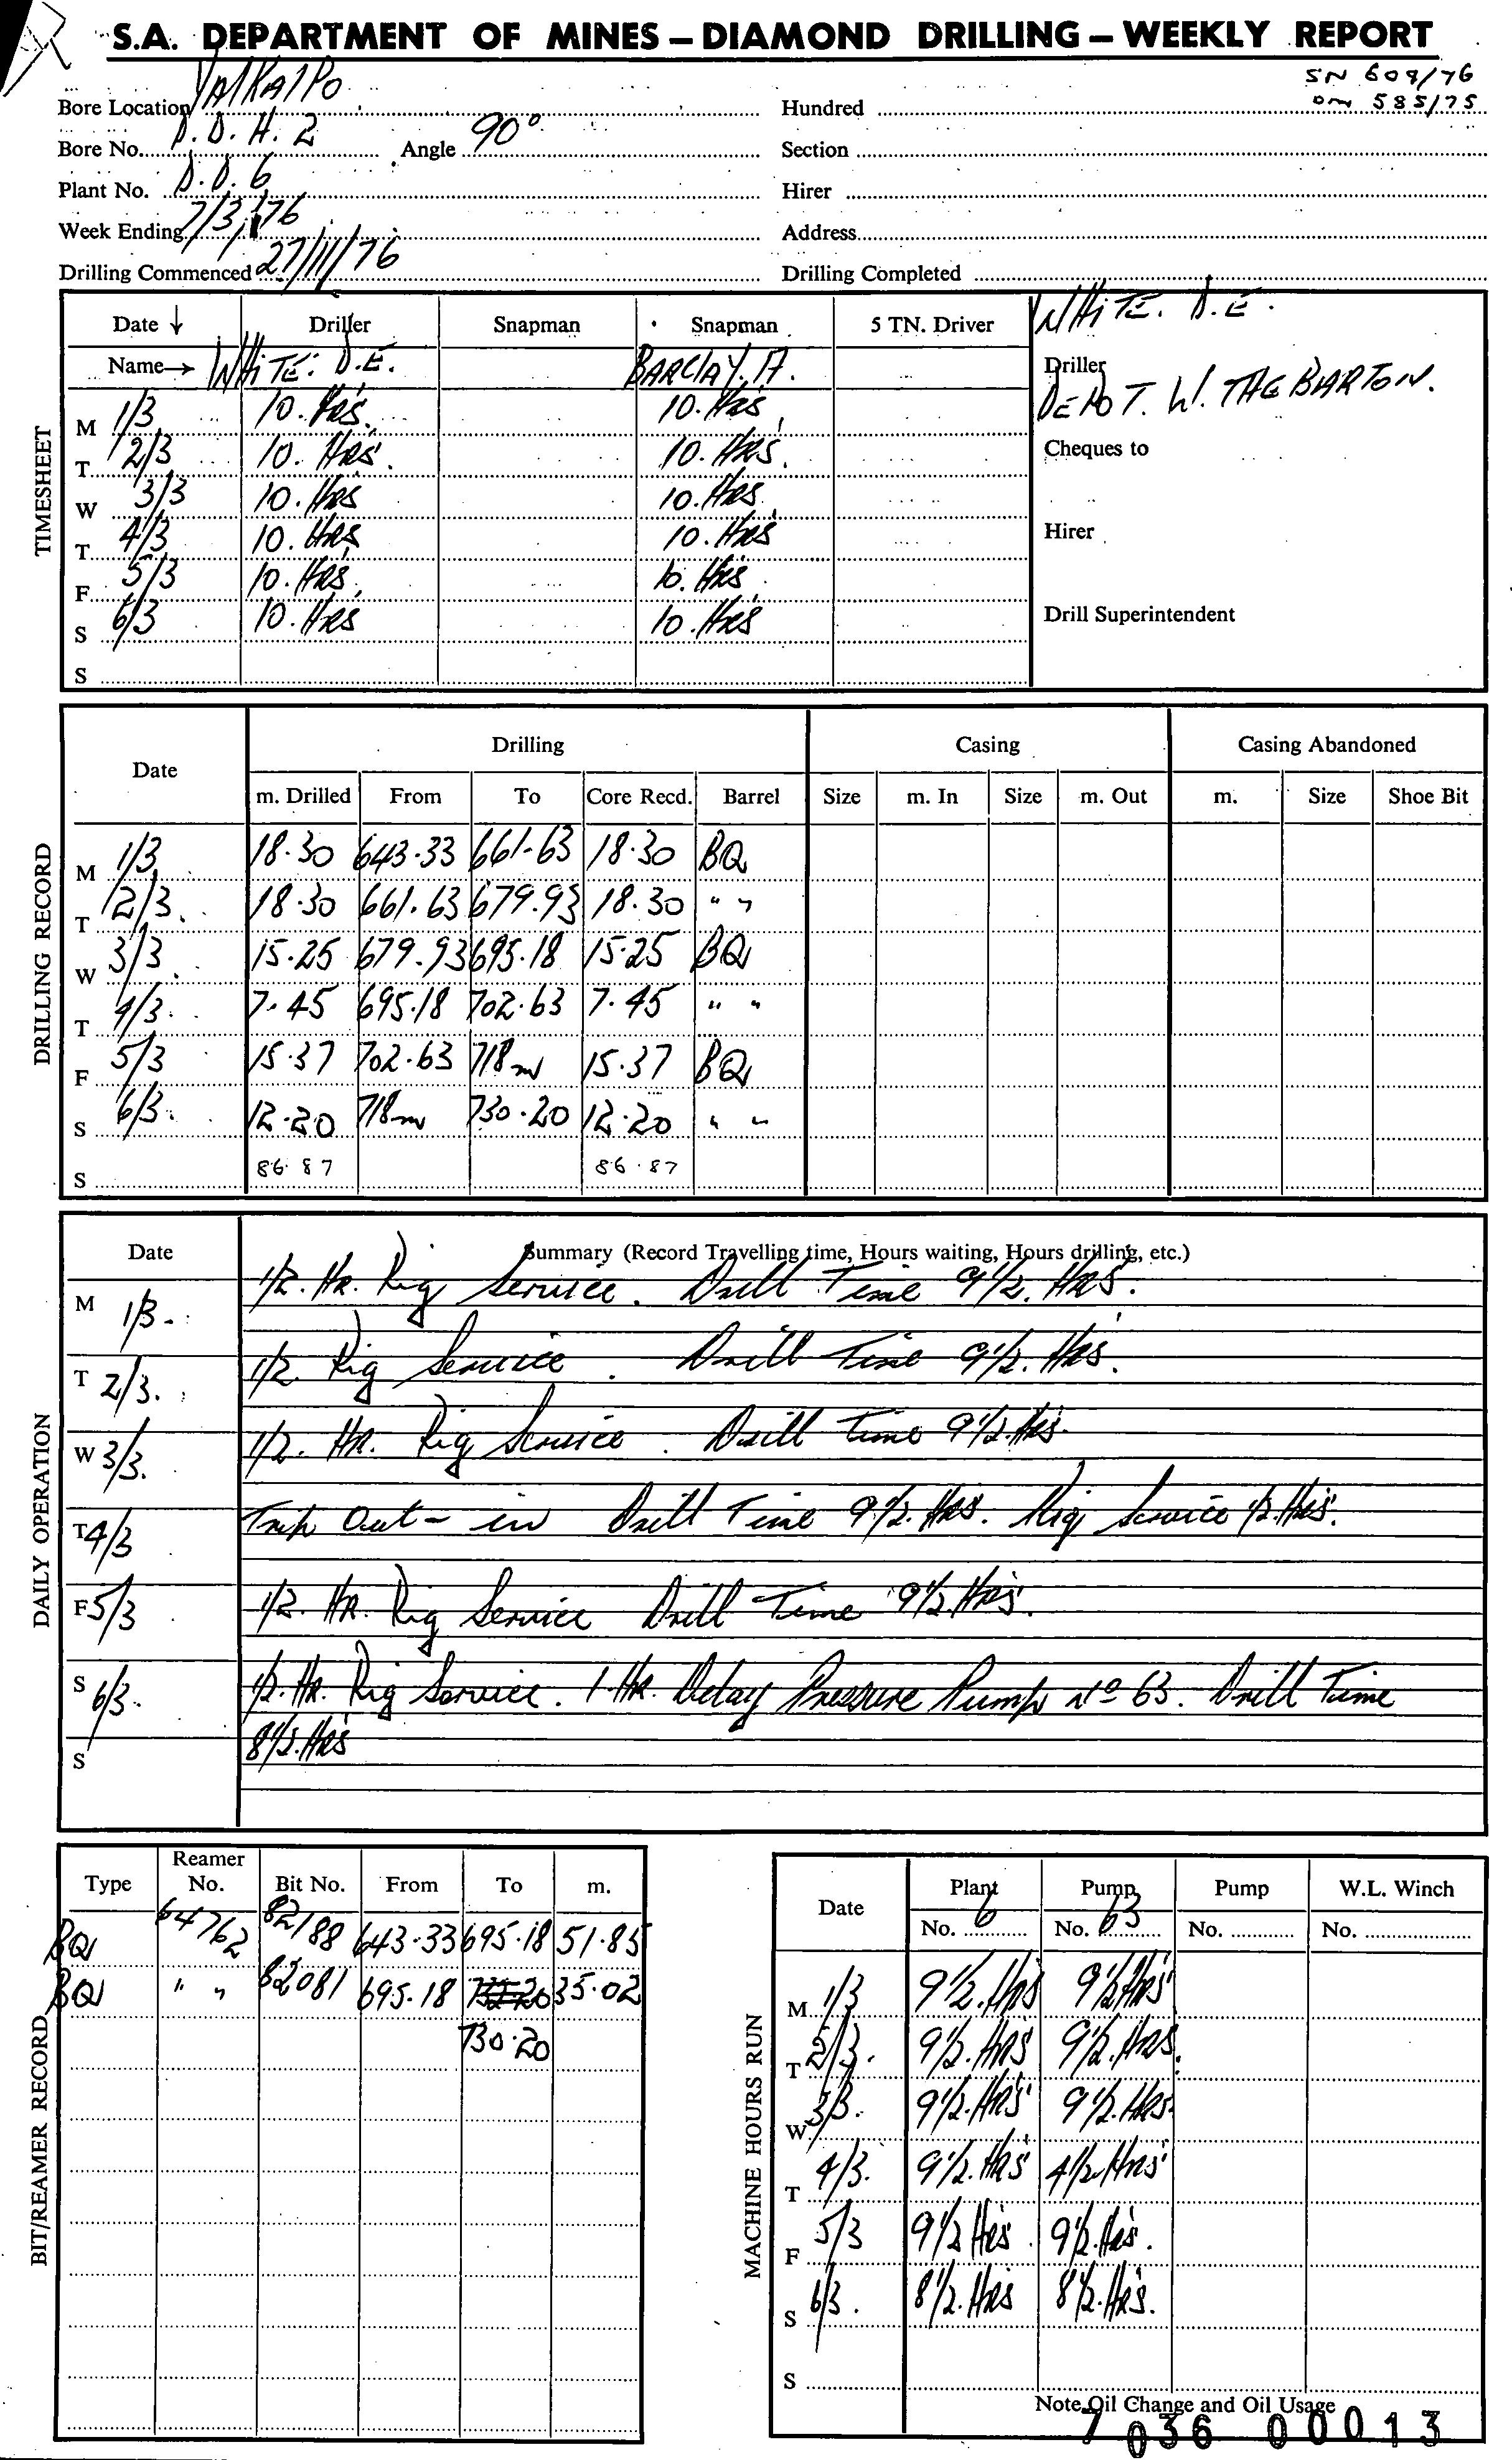 S.A. DEPARTMENT OF MINES – DIAMOND DRILLING – WEEKLY REPORT
SN 609/76
DM 585/75
Bore Location YALKALPO
Hundred
Bore No. D.D.H. 2 Angle 90°
Section
Plant No. D.D. 6
Hirer
Week Ending 7/3/76
Address
Drilling Commenced 27/11/76
Drilling Completed
TIMESHEET
Date ↓ Driller Snapman Snapman 5 TN. Driver WHITE. D.E.
Name → WHITE. D.E. BARCLAY. A. Driller
M 1/3 10. Hrs. 10. Hrs. DEPOT. W. THEBARTON.
T 2/3 10. Hrs. 10. Hrs. Cheques to
W 3/3 10. Hrs 10. Hrs
T 4/3 10. Hrs 10. Hrs Hirer
F 5/3 10. Hrs. 10. Hrs
S 6/3 10. Hrs 10. Hrs Drill Superintendent
S
DRILLING RECORD
Date Drilling Casing Casing Abandoned
m. Drilled From To Core Recd. Barrel Size m. In Size m. Out m. Size Shoe Bit
M 1/3 18.30 643.33 661.63 18.30 BQ
T 2/3. 18.30 661.63 679.93 18.30 " "
W 3/3. 15.25 679.93 695.18 15.25 BQ
T 4/3. 7.45 695.18 702.63 7.45 " "
F 5/3 15.37 702.63 718m 15.37 BQ
S 6/3. 12.20 718m 730.20 12.20 " "
S 86.87 86.87
DAILY OPERATION
Date Summary (Record Travelling time, Hours waiting, Hours drilling, etc.)
M 1/3. 1/2. Hr. Rig Service. Drill Time 9 1/2. Hrs.
T 2/3. 1/2. Rig Service. Drill Time 9 1/2. Hrs.
W 3/3. 1/2. Hr. Rig Service. Drill Time 9 1/2. Hrs.
T 4/3 Trip Out - in Drill Time 9 1/2. Hrs. Rig Service 1/2. Hrs.
F 5/3 1/2. Hr. Rig Service Drill Time 9 1/2. Hrs.
S 6/3. 1/2. Hr. Rig Service. 1. Hr. Delay Pressure Pump No 63. Drill Time
S 8 1/2. Hrs
BIT/REAMER RECORD
Type Reamer No. Bit No. From To m.
BQ 64762 82188 643.33 695.18 51.85
BQ " " 82081 695.18 35.02
730.20
MACHINE HOURS RUN
Date Plant Pump Pump W.L. Winch
No. 6 No. 63 No. No.
M 1/3 9 1/2. Hrs 9 1/2 Hrs
T 2/3. 9 1/2. Hrs 9 1/2. Hrs.
W 3/3. 9 1/2. Hrs 9 1/2. Hrs.
T 4/3. 9 1/2. Hrs 4 1/2 Hrs
F 5/3 9 1/2 Hrs. 9 1/2. Hrs.
S 6/3. 8 1/2. Hrs 8 1/2. Hrs.
S
Note Oil Change and Oil Usage
7036 00013